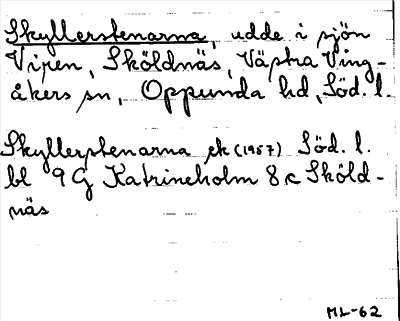 Skyllerstenarna, udde i sjön
Viren, Sköldnäs, Västra Ving-
åkers sn, Oppunda hd, Söd. l.
Skyllerstenarna ek (1957) Söd. l.
bl 9 G Katrineholm 8 c Sköld-
näs
ML-62